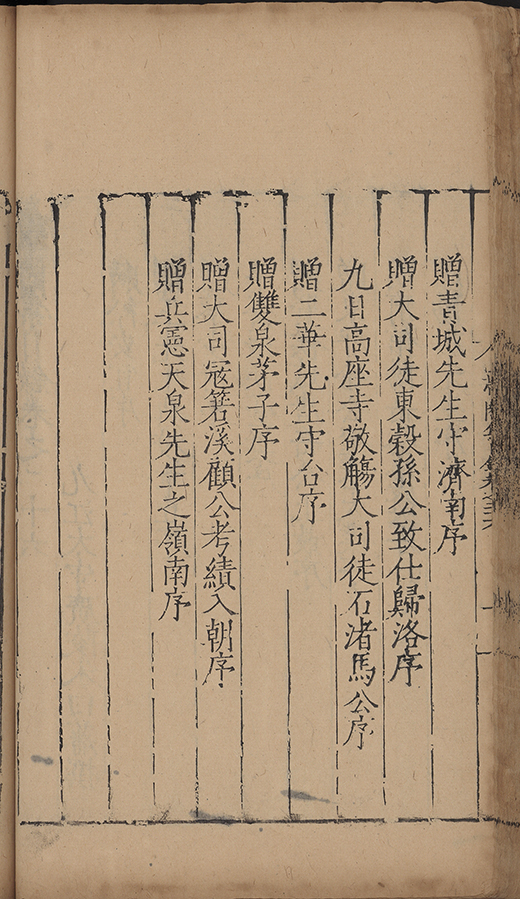 贈青城先生守濟南序
贈大司徒東穀孫公致仕歸洛序
九日高座寺敬觴大司徒石渚馬公序
贈二華先生守台序
贈雙泉茅子序
贈大司寇箬溪顧公考績入朝序
贈兵憲天泉先生之嶺南序